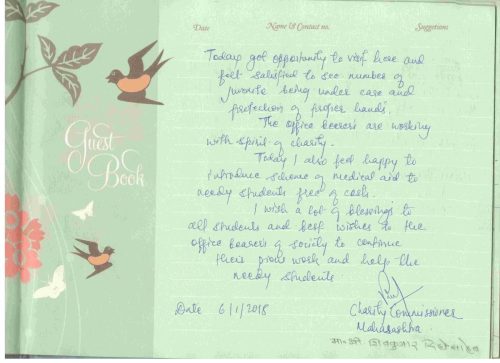 Date Name & Contact no. Suggestions
Guest
Book
Today got opportunity to visit here and
felt satisfied to see number of
juvenile being under care and
protection of proper hands.
The office bearers are working
with spirit of charity.
Today I also feel happy to
introduce scheme of medical aid to
needy students free of cash.
I wish a lot of blessings to
all students and best wishes to the
office bearers of society to continue
their pious work and help the
needy students
Date 6/1/2018
Charity Commissioner
Maharashtra
मा. श्री. शिवकुमार